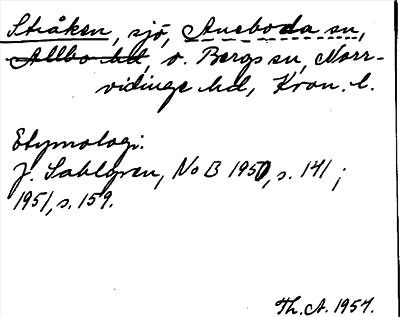 Stråken, sjö, Aneboda sn,
Allbo hd, o. Bergs sn, Norr-
vidinge hd, Kron. l.
Etymologi:
J. Sahlgren, NoB 1950, s. 141;
1951, s. 159.
Th. A. 1957.